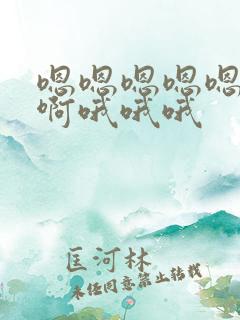 嗯嗯嗯嗯嗯
啊哦哦哦
匡河林
未经同意禁止转载